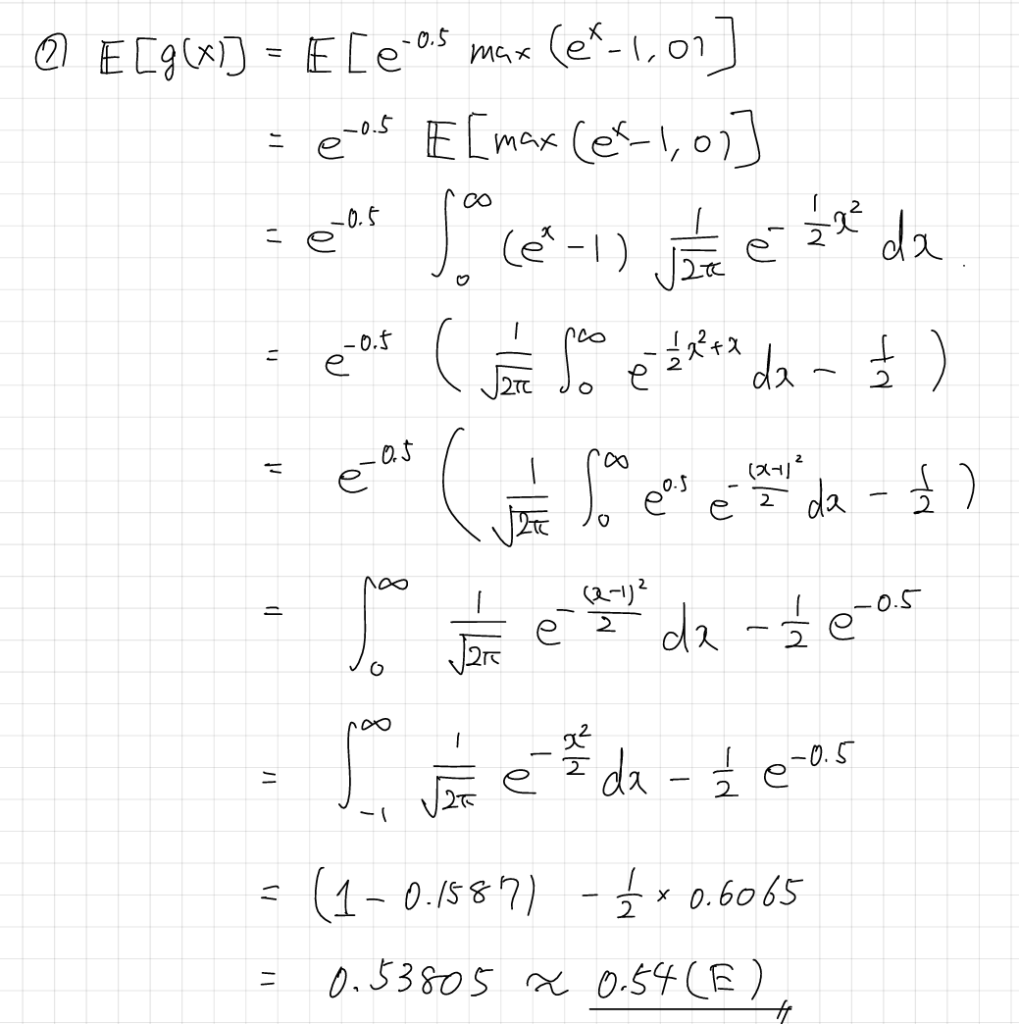 ② E[g(x)] = E[e^{-0.5} max(e^x-1, 0)]
= e^{-0.5} E[max(e^x-1, 0)]
= e^{-0.5} ∫_0^∞ (e^x-1) \frac{1}{\sqrt{2π}} e^{-\frac{1}{2}x^2} dx.
= e^{-0.5} ( \frac{1}{\sqrt{2π}} ∫_0^∞ e^{-\frac{1}{2}x^2+x} dx - \frac{1}{2} )
= e^{-0.5} ( \frac{1}{\sqrt{2π}} ∫_0^∞ e^{0.5} e^{-\frac{(x-1)^2}{2}} dx - \frac{1}{2} )
= ∫_0^∞ \frac{1}{\sqrt{2π}} e^{-\frac{(x-1)^2}{2}} dx - \frac{1}{2} e^{-0.5}
= ∫_{-1}^∞ \frac{1}{\sqrt{2π}} e^{-\frac{x^2}{2}} dx - \frac{1}{2} e^{-0.5}
= (1-0.1587) - \frac{1}{2} × 0.6065
= 0.53805 ≈ 0.54 (E)